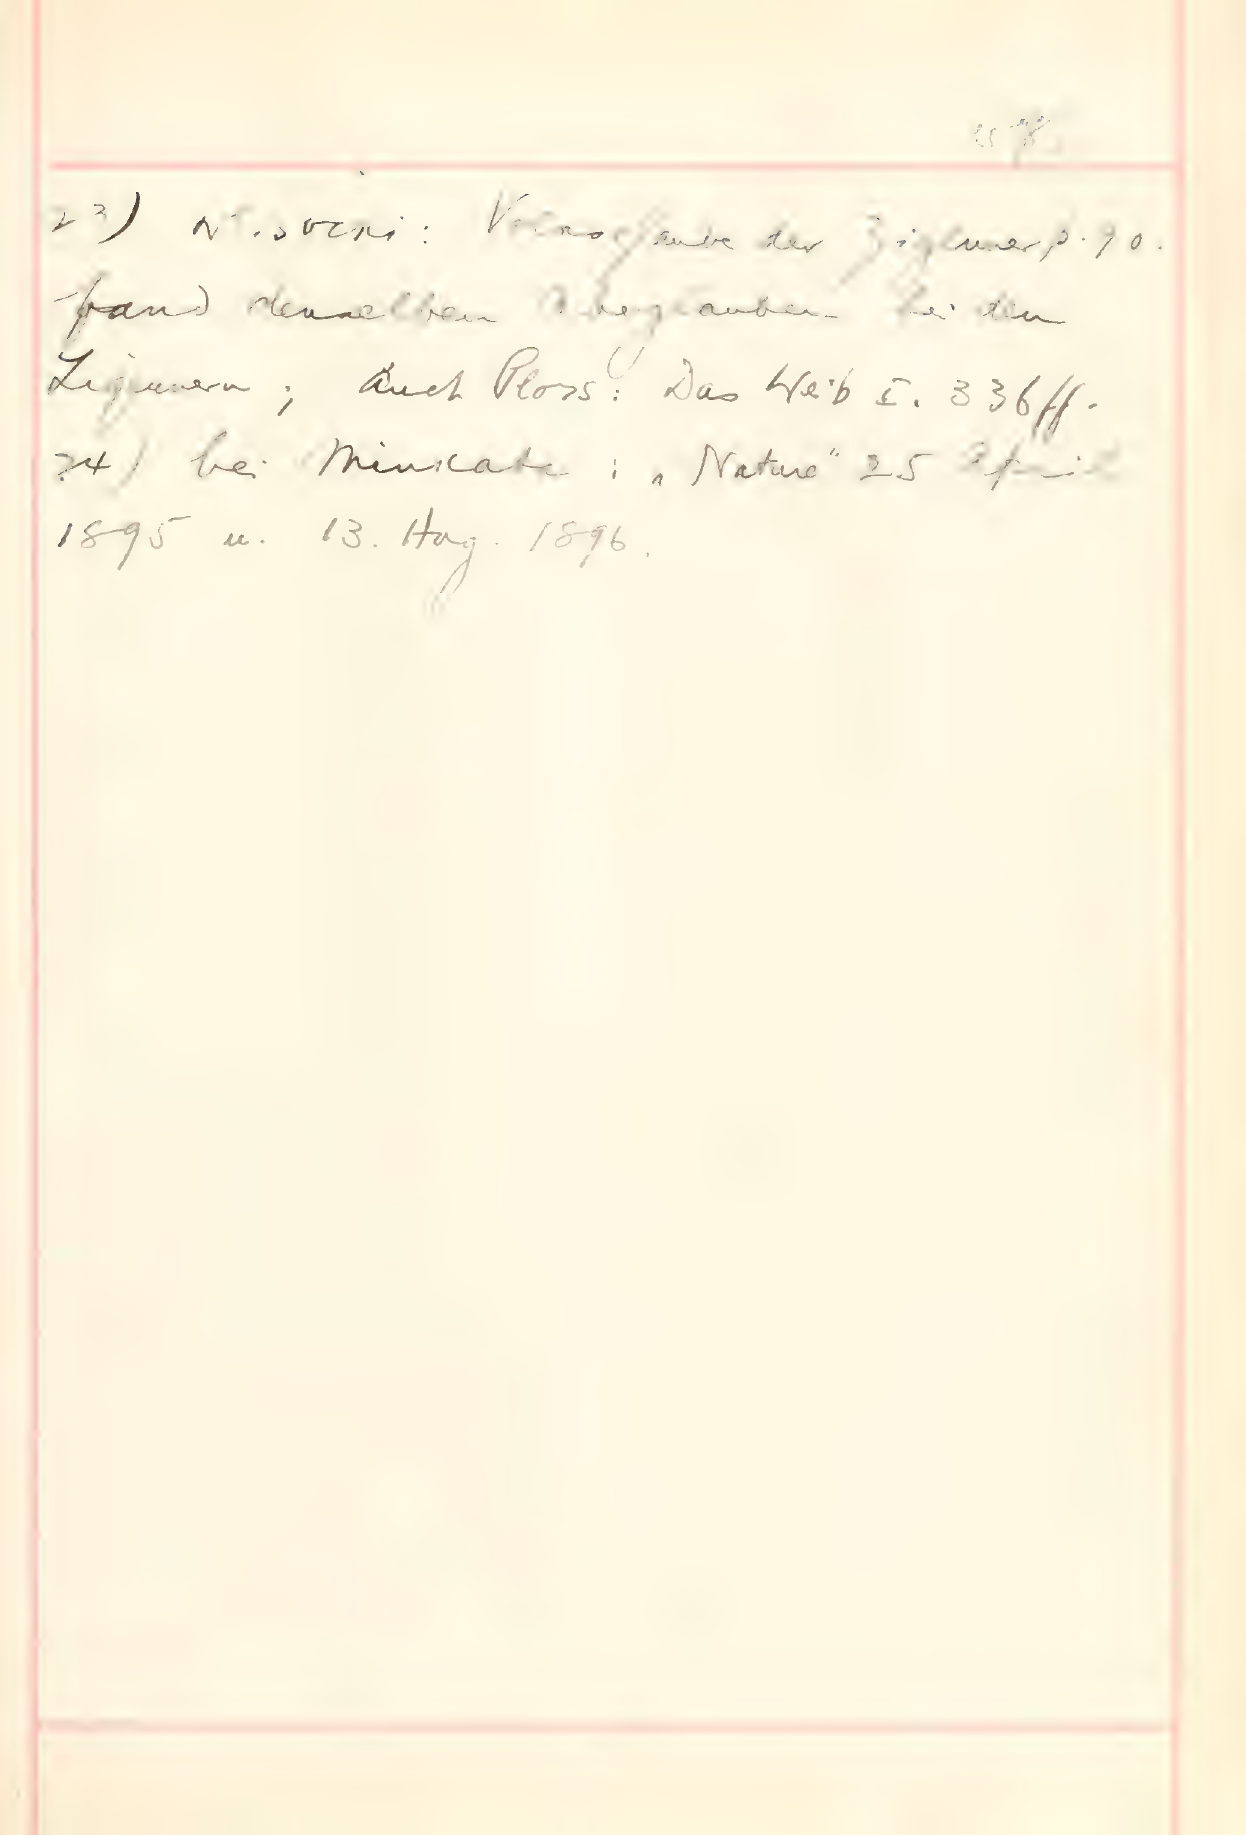 23) Wlislocki: Volksglaube der Zigeuner p. 90.
fand denselben Aberglauben bei den
Zigeunern; auch Ploss: Das Weib I. 336 ff.
24) bei : „Nature" 25 April
1895 u. 13. Aug. 1896.